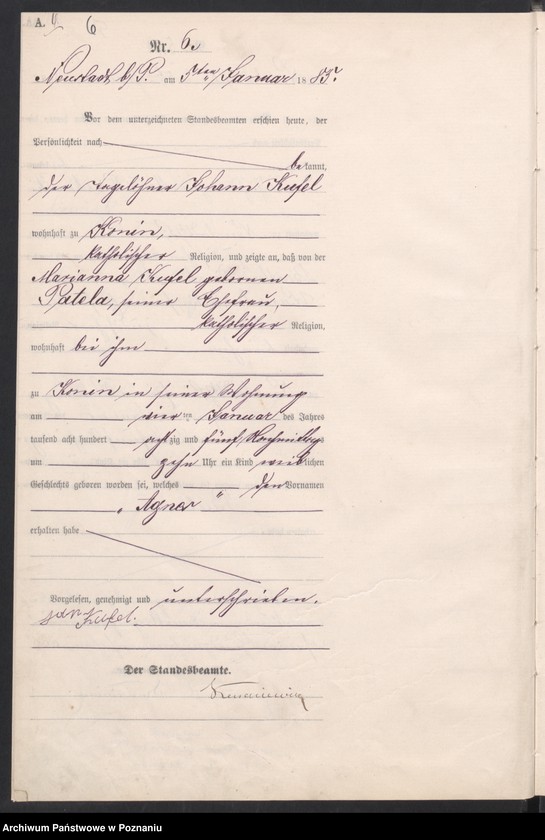 A. 6
Nr. 6.
Neustadt b/P. am 5ten Januar 1885.
Vor dem unterzeichneten Standesbeamten erschien heute, der
Persönlichkeit nach
bekannt,
der Tagelöhner Johann Kufel
wohnhaft zu Konin,
katholischer Religion, und zeigte an, daß von der
Marianna Kufel geborenen
Patela, seiner Ehefrau,
katholischer Religion,
wohnhaft bei ihm
zu Konin in seiner Wohnung
am vier ten Januar des Jahres
tausend acht hundert achtzig und fünf Nachmittags
um zehn Uhr ein Kind weiblichen
Geschlechts geboren worden sei, welches den Vornamen
„Agnes"
erhalten habe
Vorgelesen, genehmigt und unterschrieben.
Jan Kufel.
Der Standesbeamte.
Archiwum Państwowe w Poznaniu